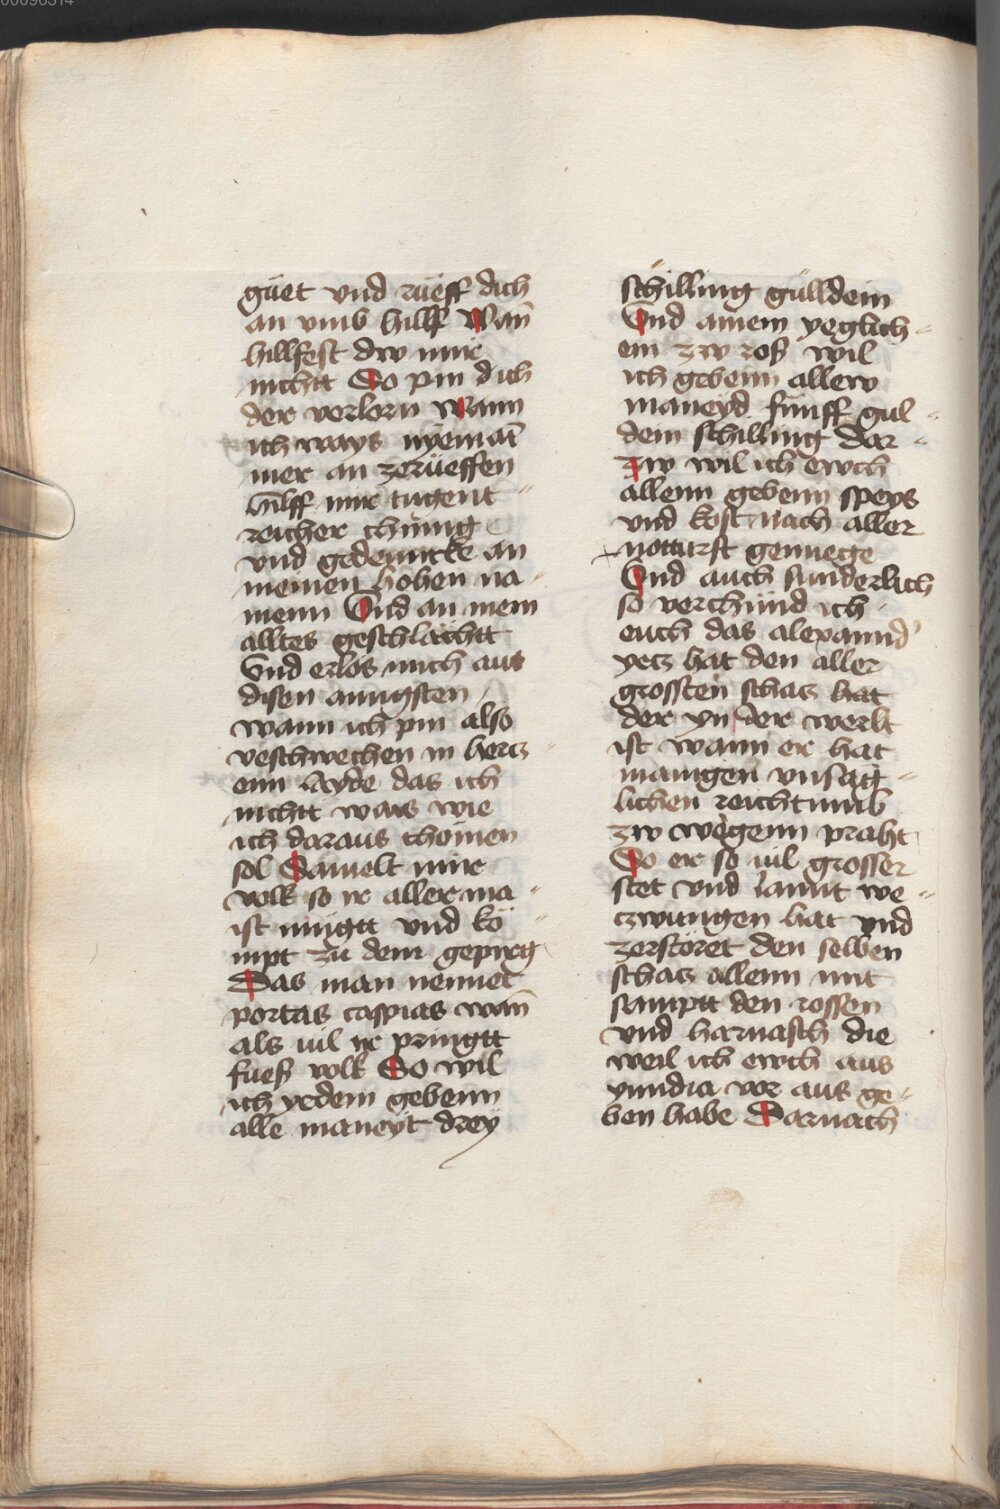 00096314
güet vnd rüeff dich
an vmb hillf Wan̄
hillfest dw mir
nichtt So pin dich
der verlorn Wann
ich ways nyemāt
mer an zerüeffen
hilff mir tugent
reicher chünig
vnd gedenncke an
meinen hohen na-
menn Vnd an mein
alltes geschlächtt
Vnd erlös mich aus
disen anngsten
wann ich pin also
veschwechen in hercz
enn layde das ich
nichtt wais wie
ich daraus chömen
sol Samelt mir
volk so ir aller ma
ist mügtt vnd kö
mpt zü dem gepirg
Das man nennet
portas caspias wan̄
als vil ir pringtt
fuess volk So wil
ich yedem gebenn
alle maneyt drey
schilling gülldein
Vnd ainem yeglich-
em zw ross wil
ich gebenn allew
maneyd fünff gul-
dein schilling dar-
zw wil ich ewch
allenn gebenn speys
vnd kost nach aller
notturft genuege
Vnd auch sunderlich
so verchünd ich
euch das alexannd'
yecz hat den aller
grossten schacz hat
der yn der werlt
ist wann er hat
manigen vnsäg-
lichen reichtumb
zw wegenn praht
So er so vil grosser
stet vnd lannt we-
czwungen hat vnd
zerstöret den selben
schacz allenn mit
sampt den rossen
vnd harnasch die
weil ich ewch aus
yundia vor aus ge-
ben habe Darnach